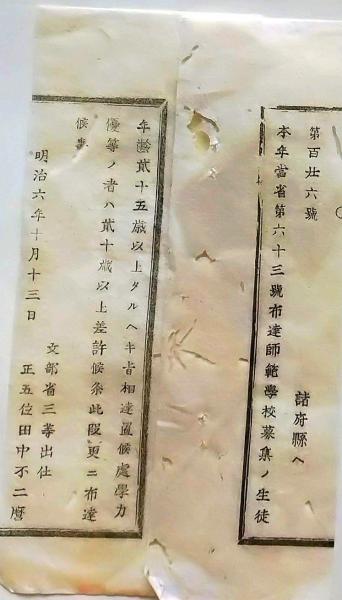 第百廿六號
諸府縣へ
本年當省第六十三號布達師範學校募集ノ生徒
年齡貳十五歳以上タルヘキ旨相達置候處學力
優等ノ者ハ貳十歳以上差許候條此段更ニ布達
候事
明治六年十月十三日
文部省三等出仕
正五位田中不二麿